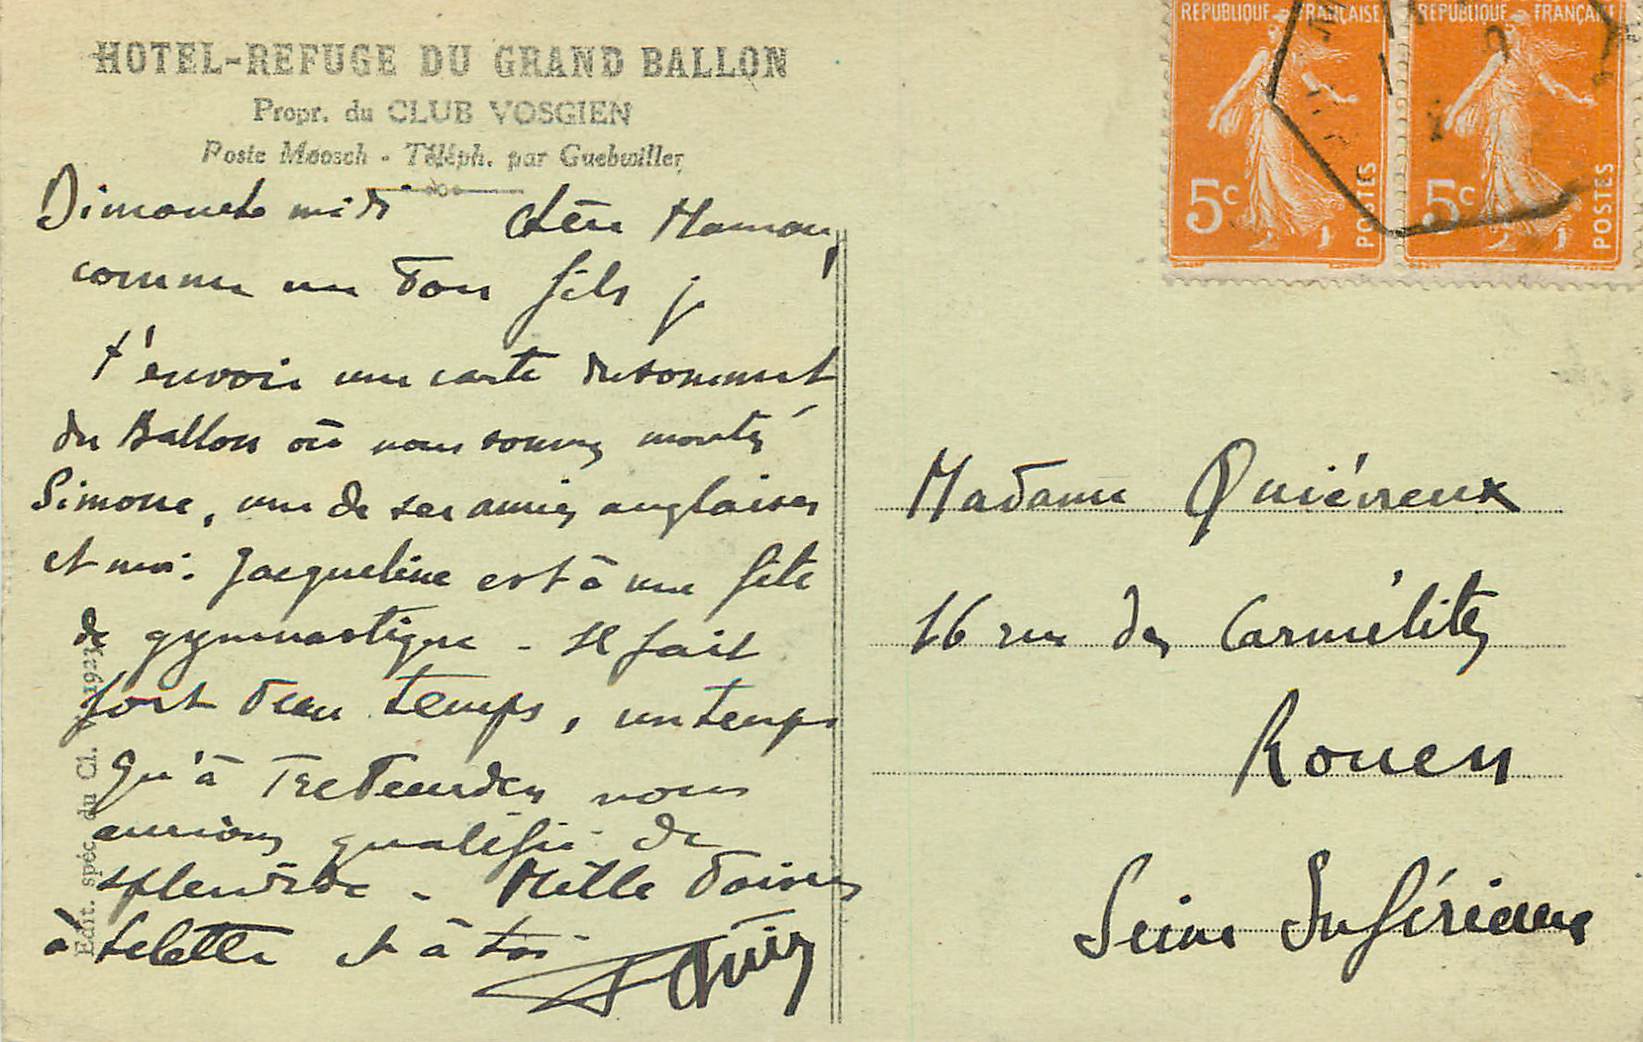 HOTEL-REFUGE DU GRAND BALLON
Propr. du CLUB VOSGIEN
Poste Moosch - Téléph. par Guebwiller
Dimanche midi Chère Maman,
comme un bon fils je
t'envoie une carte du sommet
du Ballon où nous sommes montés
Simone, une de ses amies anglaises
et moi. Jacqueline est à une fête
de gymnastique - Il fait
fort beau temps, un temps
qu'à Trebeurden nous
aurions qualifié de
splendide - Mille baisers
à et à toi
Edit. spéc. du Cl. V. 1927
REPUBLIQUE FRANÇAISE
5c
POSTES
REPUBLIQUE FRANÇAISE
5c
POSTES
Madame Quiévreux
16 rue des Carmélites
Rouen
Seine Inférieure